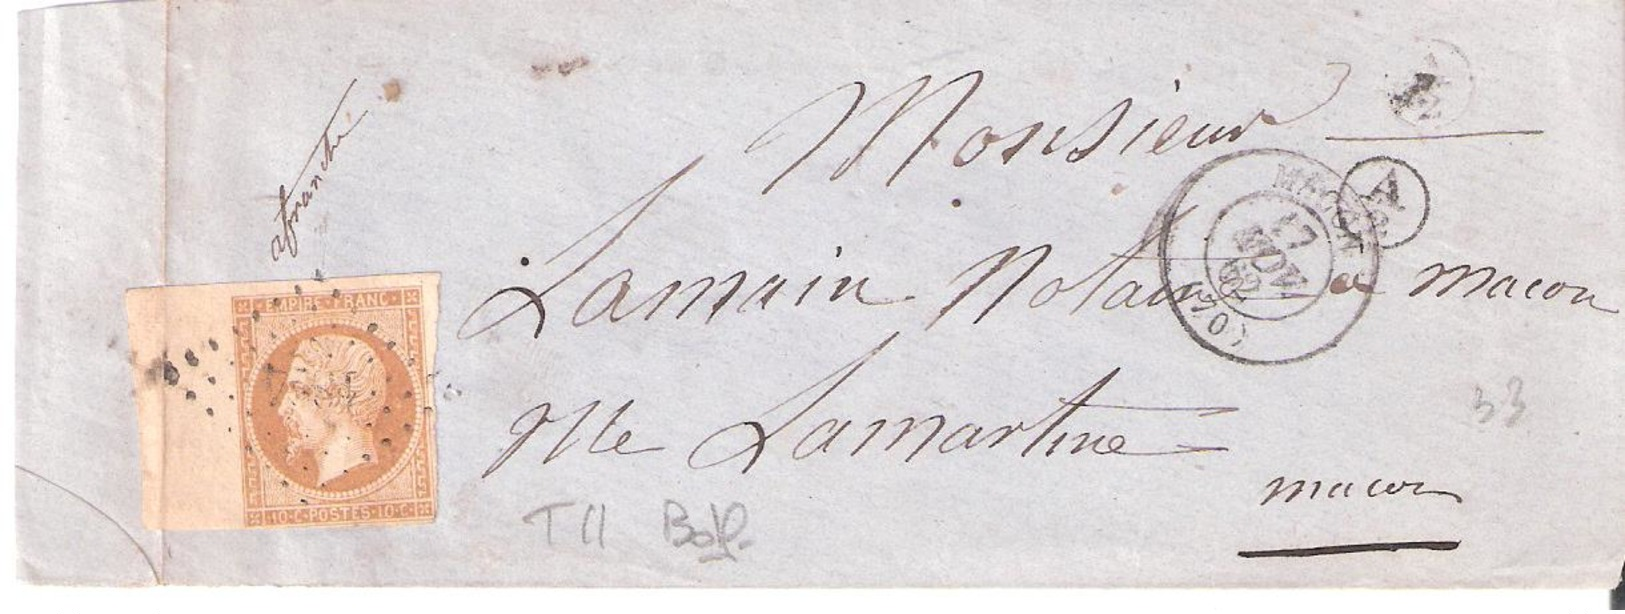 afranchi
Monsieur
Lamain Notaire a macon
Rue Lamartine
macon
EMPIRE FRANC
10·C·POSTES·10·C
MACON
17
NOV.
(70)
A
T II
33